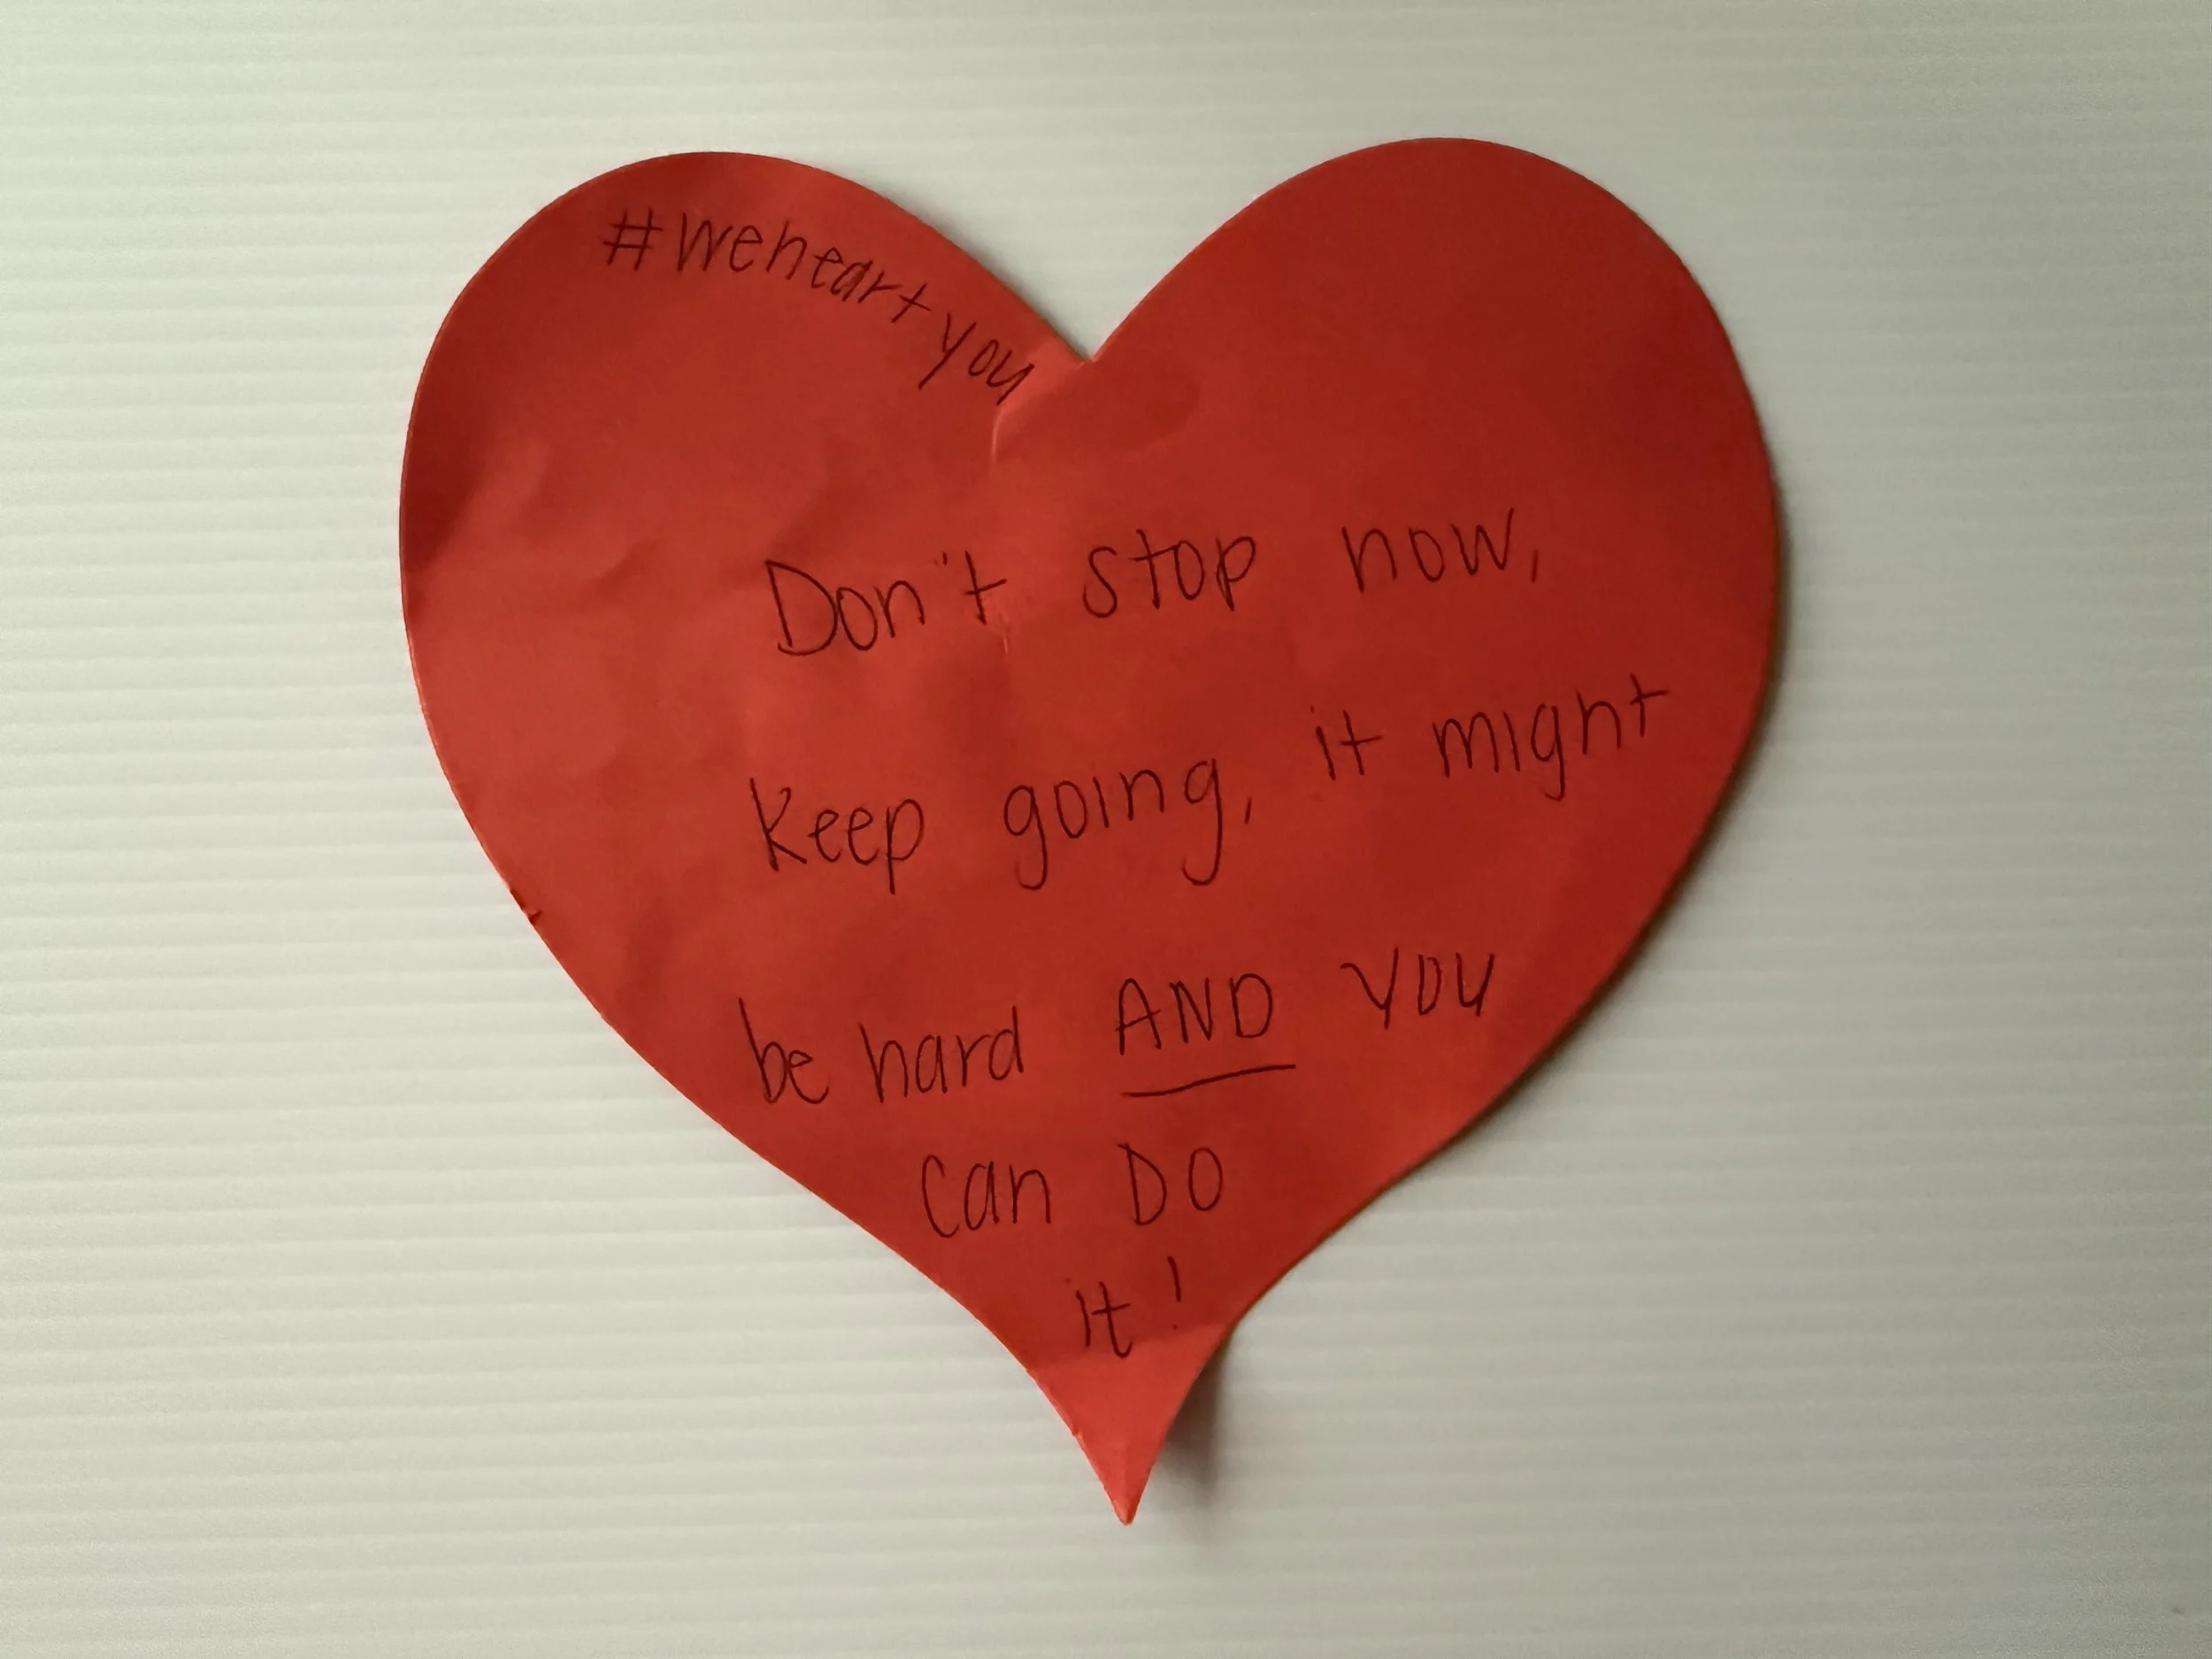 #weheartyou
Don't stop now,
keep going, it might
be hard AND you
can DO
it!